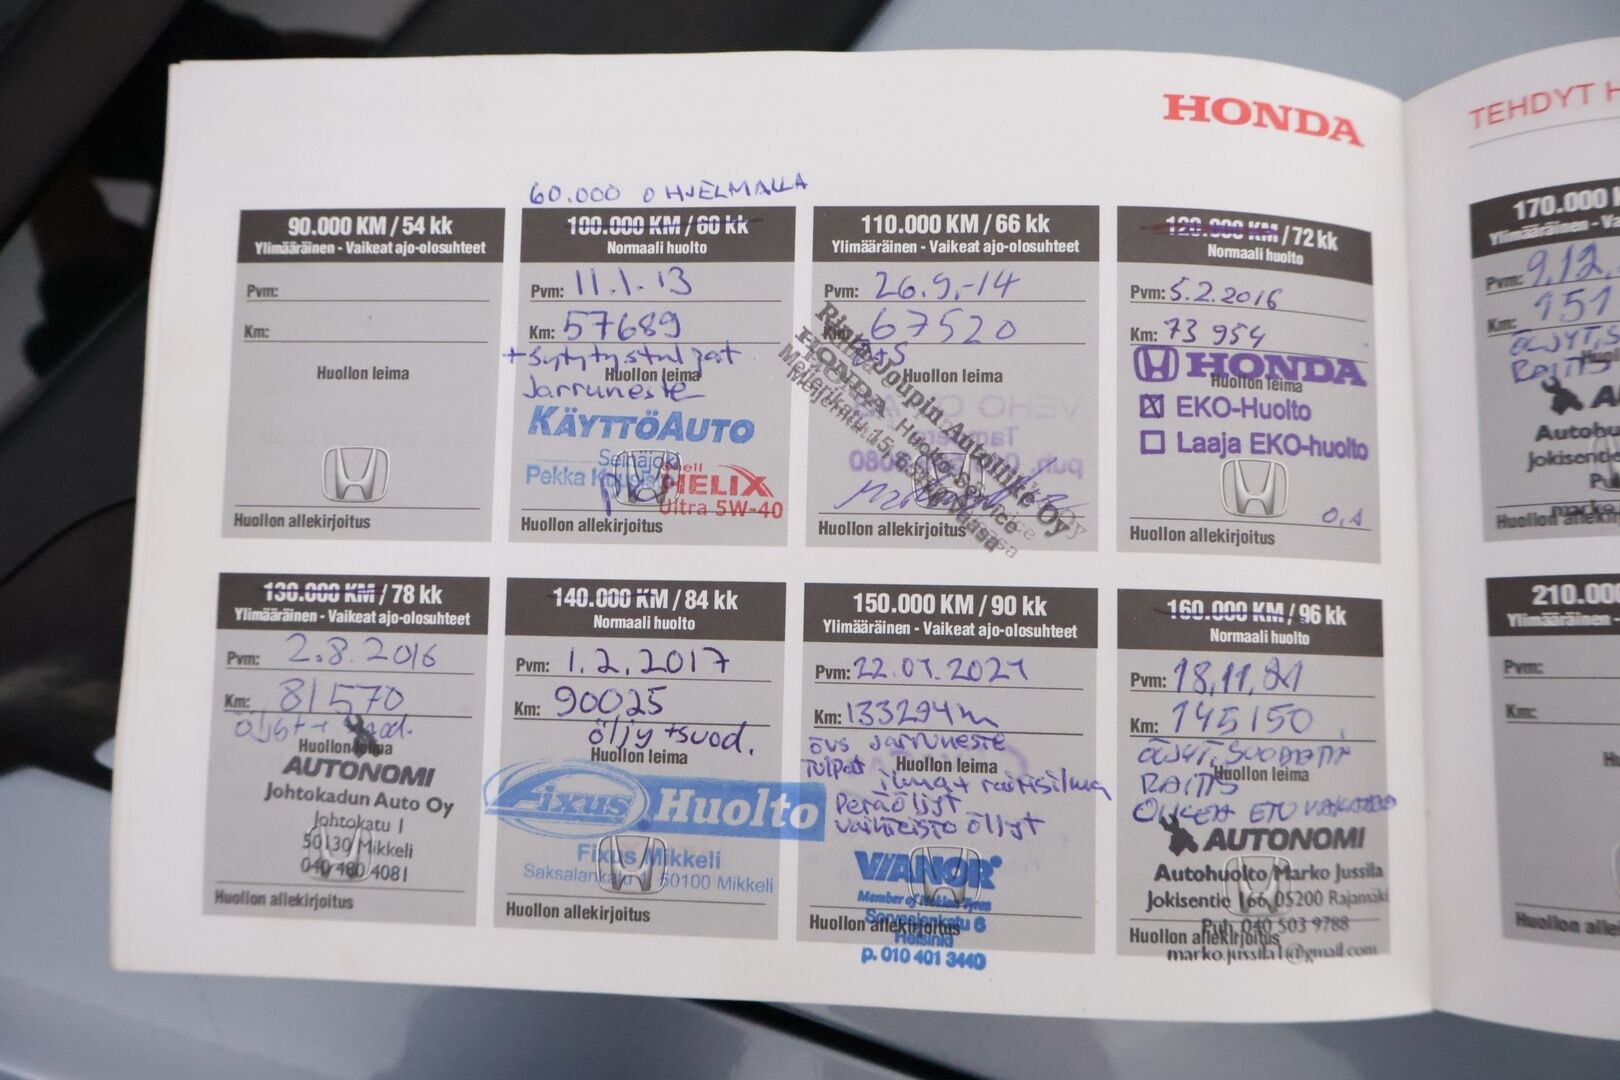 HONDA
TEHDYT H
60.000 OHJELMALLA
90.000 KM / 54 kk
Ylimääräinen - Vaikeat ajo-olosuhteet
Pvm:
Km:
Huollon leima
Huollon allekirjoitus
100.000 KM / 60 kk
Normaali huolto
Pvm: 11.1.13
Km: 57689
+ sytytystulpat
Huollon leima
Jarruneste
KÄYTTÖAUTO
Seinäjoki
Pekka
Shell
HELIX
Ultra 5W-40
Huollon allekirjoitus
110.000 KM / 66 kk
Ylimääräinen - Vaikeat ajo-olosuhteet
Pvm: 26.9.-14
Km: 67520
Huollon leima
Rinta-Joupin Autoliike Oy
HONDA Huolto-Service
Huollon allekirjoitus
120.000 KM / 72 kk
Normaali huolto
Pvm: 5.2.2016
Km: 73 954
HONDA
Huollon leima
EKO-Huolto
Laaja EKO-huolto
Huollon allekirjoitus
130.000 KM / 78 kk
Ylimääräinen - Vaikeat ajo-olosuhteet
Pvm: 2.8.2016
Km: 81570
Huollon leima
AUTONOMI
Johtokadun Auto Oy
Johtokatu 1
50130 Mikkeli
040 480 4081
Huollon allekirjoitus
140.000 KM / 84 kk
Normaali huolto
Pvm: 1.2.2017
Km: 90025
öljy + suod.
Huollon leima
Fixus Huolto
Fixus Mikkeli
Saksalankatu 1 50100 Mikkeli
Huollon allekirjoitus
150.000 KM / 90 kk
Ylimääräinen - Vaikeat ajo-olosuhteet
Pvm: 22.01.2021
Km: 133294
övs jarruneste
Tulpat
Huollon leima
ilma + raitisilma
Peräöljyt
vaihteisto öljyt
VIANOR
Member of Nokian Tyres
6
Huollon allekirjoitus
Helsinki
p. 010 401 3440
160.000 KM / 96 kk
Normaali huolto
Pvm: 18.11.21
Km: 145150
ÖLJYT, SUODATIN
Huollon leima
RAITIS
OIKEA ETU
AUTONOMI
Autohuolto Marko Jussila
Jokisentie 166, 05200 Rajamäki
Puh. 040 503 9788
Huollon allekirjoitus
marko.jussila1@gmail.com
170.000
Ylimääräinen - Va
Pvm: 9.12.
Km: 151
ÖLJYT, S
RAITIS
Autohu
Jokisentie
Huollon allekirj
210.000
Ylimääräinen
Pvm:
Km:
Hu
Huollon alle